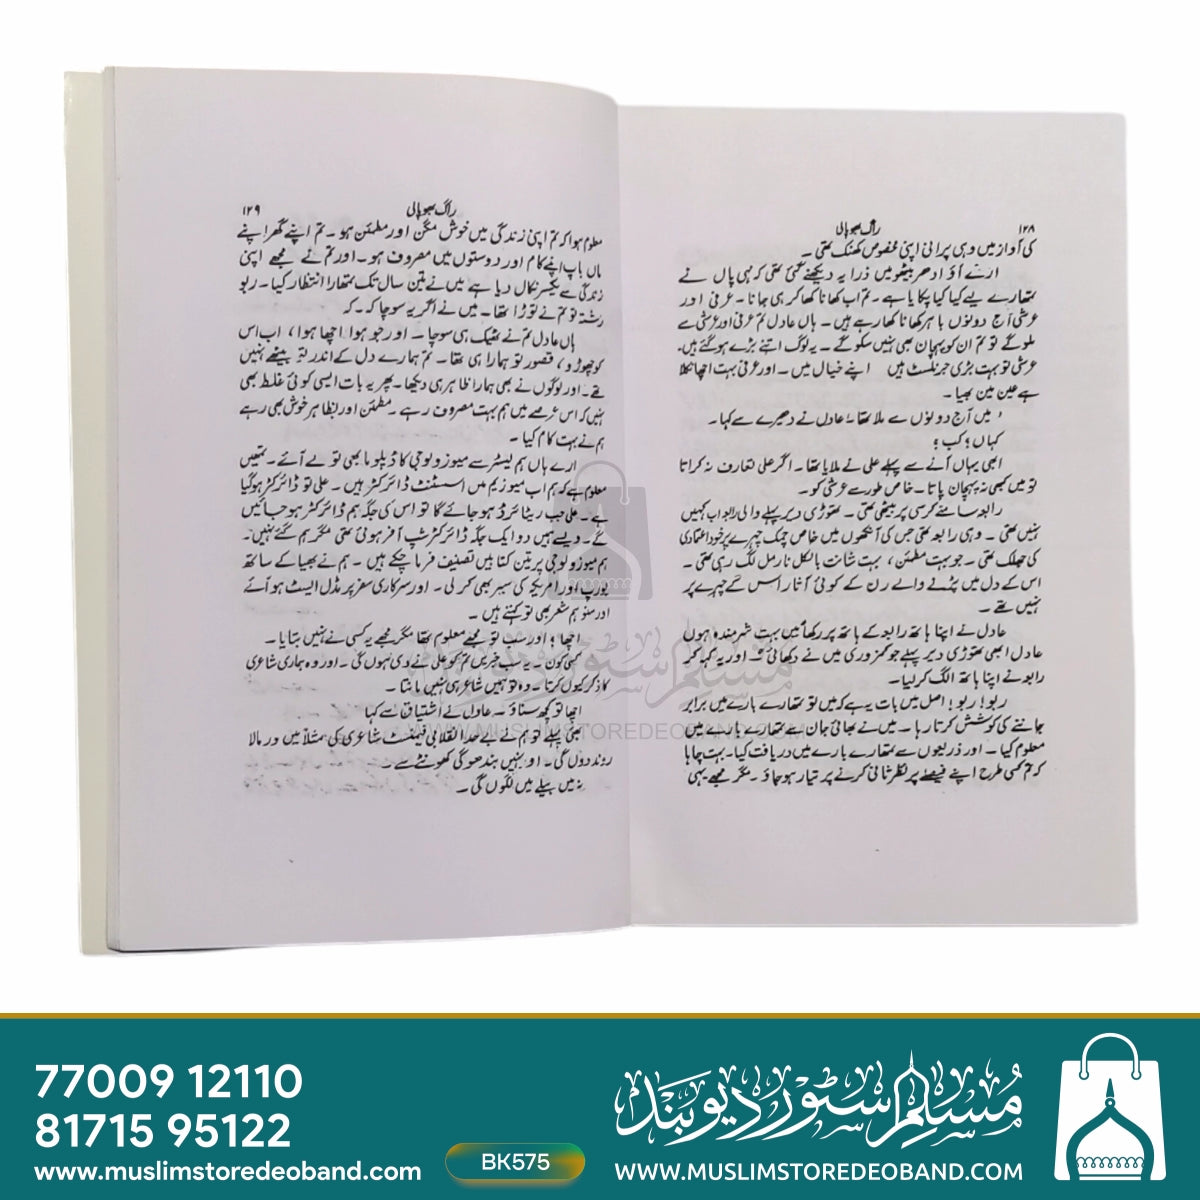 ۱۲۸
راگ بھوپالی
کی آواز میں وہی پرانی اپنی مخصوص کھنک تھی۔
ارے آؤ ادھر بیٹھو میں ذرا یہ دیکھنے گئی تھی کہ بی پال نے
تمھارے لیے کیا کیا پکایا ہے۔ تم اب کھانا کھا کر ہی جانا۔ عرفی اور
عرشی آج دونوں باہر کھانا کھا رہے ہیں۔ ہاں عادل تم عرفی اور عرشی سے
ملو گے تو تم ان کو پہچان بھی نہیں سکو گے۔ یہ لوگ اتنے بڑے ہو گئے ہیں۔
عرشی تو بہت بڑی جرنلسٹ ہیں اپنے خیال میں۔ اور عرفی بہت اچھا نکلا
ہے عین مین بھیا۔
'میں آج دونوں سے ملا تھا' عادل نے دھیرے سے کہا۔
کہاں؟ کب؟
ابھی یہاں آنے سے پہلے علی نے ملایا تھا۔ اگر علی تعارف نہ کراتا
تو میں کبھی نہ پہچان پاتا۔ خاص طور سے عرشی کو۔
رابعہ سامنے کرسی پر بیٹھی تھی۔ تھوڑی دیر پہلے والی رابعہ اب کہیں
نہیں تھی۔ وہی رابعہ تھی جس کی آنکھوں میں خاص چمک چہرے پر خود اعتمادی
کی جھلک تھی۔ جو بہت مطمئن، بہت شانت بالکل نارمل لگ رہی تھی۔
اس کے دل میں پڑنے والے رن کے کوئی آثار اس کے چہرے پر
نہیں تھے۔
عادل نے اپنا ہاتھ رابعہ کے ہاتھ پر رکھا میں بہت شرمندہ ہوں
عادل ابھی تھوڑی دیر پہلے جو کمزوری میں نے دکھائی۔ اور یہ کہا کر
رابعہ نے اپنا ہاتھ الگ کر لیا۔
ربو! ربو! اصل میں بات یہ ہے کہ میں تو تمھارے بارے میں برابر
جاننے کی کوشش کرتا رہا۔ میں نے بھائی جان سے تمھارے بارے میں
معلوم کیا۔ اور ذریعوں سے تمھارے بارے میں دریافت کیا۔ بہت چاہا
کہ تم کسی طرح اپنے فیصلے پر نظر ثانی کرنے پر تیار ہو جاؤ۔ مگر مجھے یہی
راگ بھوپالی
۱۲۹
معلوم ہوا کہ تم اپنی زندگی میں خوش مگن اور مطمئن ہو۔ تم اپنے گھر اپنے
ماں باپ اپنے کام اور دوستوں میں مصروف ہو۔ اور تم نے مجھے اپنی
زندگی سے یکسر نکال دیا ہے میں نے تین سال تک تمھارا انتظار کیا۔ ربو
رشتہ تو تم نے توڑا تھا۔ میں نے اگر یہ سوچا کہ۔ کہ
ہاں عادل تم نے ٹھیک ہی سوچا۔ اور جو ہوا اچھا ہوا، اب اس
کو چھوڑو، قصور تو ہمارا ہی تھا۔ تم ہمارے دل کے اندر تو بیٹھے نہیں
تھے۔ اور لوگوں نے بھی ہمارا ظاہر ہی دیکھا۔ پھر یہ بات ایسی کوئی غلط بھی
نہیں کہ اس عرصے میں ہم بہت مصروف رہے۔ مطمئن اور بظاہر خوش بھی رہے
ہم نے بہت کام کیا۔
ارے ہاں ہم لیسٹر سے میوزولوجی کا ڈپلوما بھی تو لے آئے۔ تمھیں
معلوم ہے کہ ہم اب میوزیم میں اسسٹنٹ ڈائرکٹر ہیں۔ علی تو ڈائرکٹر ہو گیا
ہے۔ علی جب ریٹائرڈ ہو جائے گا تو اس کی جگہ ہم ڈائرکٹر ہو جائیں
گے۔ ویسے ہمیں دو ایک جگہ ڈائرکٹر شپ آفر ہوئی تھی مگر ہم گئے نہیں۔
ہم میوزولوجی پر تین کتابیں تصنیف فرما چکے ہیں۔ ہم نے بھیا کے ساتھ
یورپ اور امریکہ کی سیر بھی کر لی۔ اور سرکاری سفر پر مڈل ایسٹ ہو آئے
اور سنو ہم شعر بھی تو کہتے ہیں۔
اچھا! اور سب تو مجھے معلوم تھا مگر مجھے یہ کسی نے نہیں بتایا۔
کسی کون۔ یہ سب خبریں تم کو علی نے دی ہوں گی۔ اور وہ ہماری شاعری
کا ذکر کیوں کرتا۔ وہ تو ہمیں شاعر ہی نہیں مانتا۔
اچھا تو کچھ سناؤ۔ عادل نے اشتیاق سے کہا
بھئی پہلے تو ہم نے بے حد انقلابی فیمنسٹ شاعری کی مثلاً میں ور مالا
روند دوں گی۔ اور نہیں بندھو گی کھونٹے سے۔
نہ میں بیلے میں لگوں گی۔
مسلم سٹور دیوبند
WWW.MUSLIMSTOREDEOBAND.COM
77009 12110
81715 95122
www.muslimstoredeoband.com
BK575
مسلم سٹور دیوبند
WWW.MUSLIMSTOREDEOBAND.COM